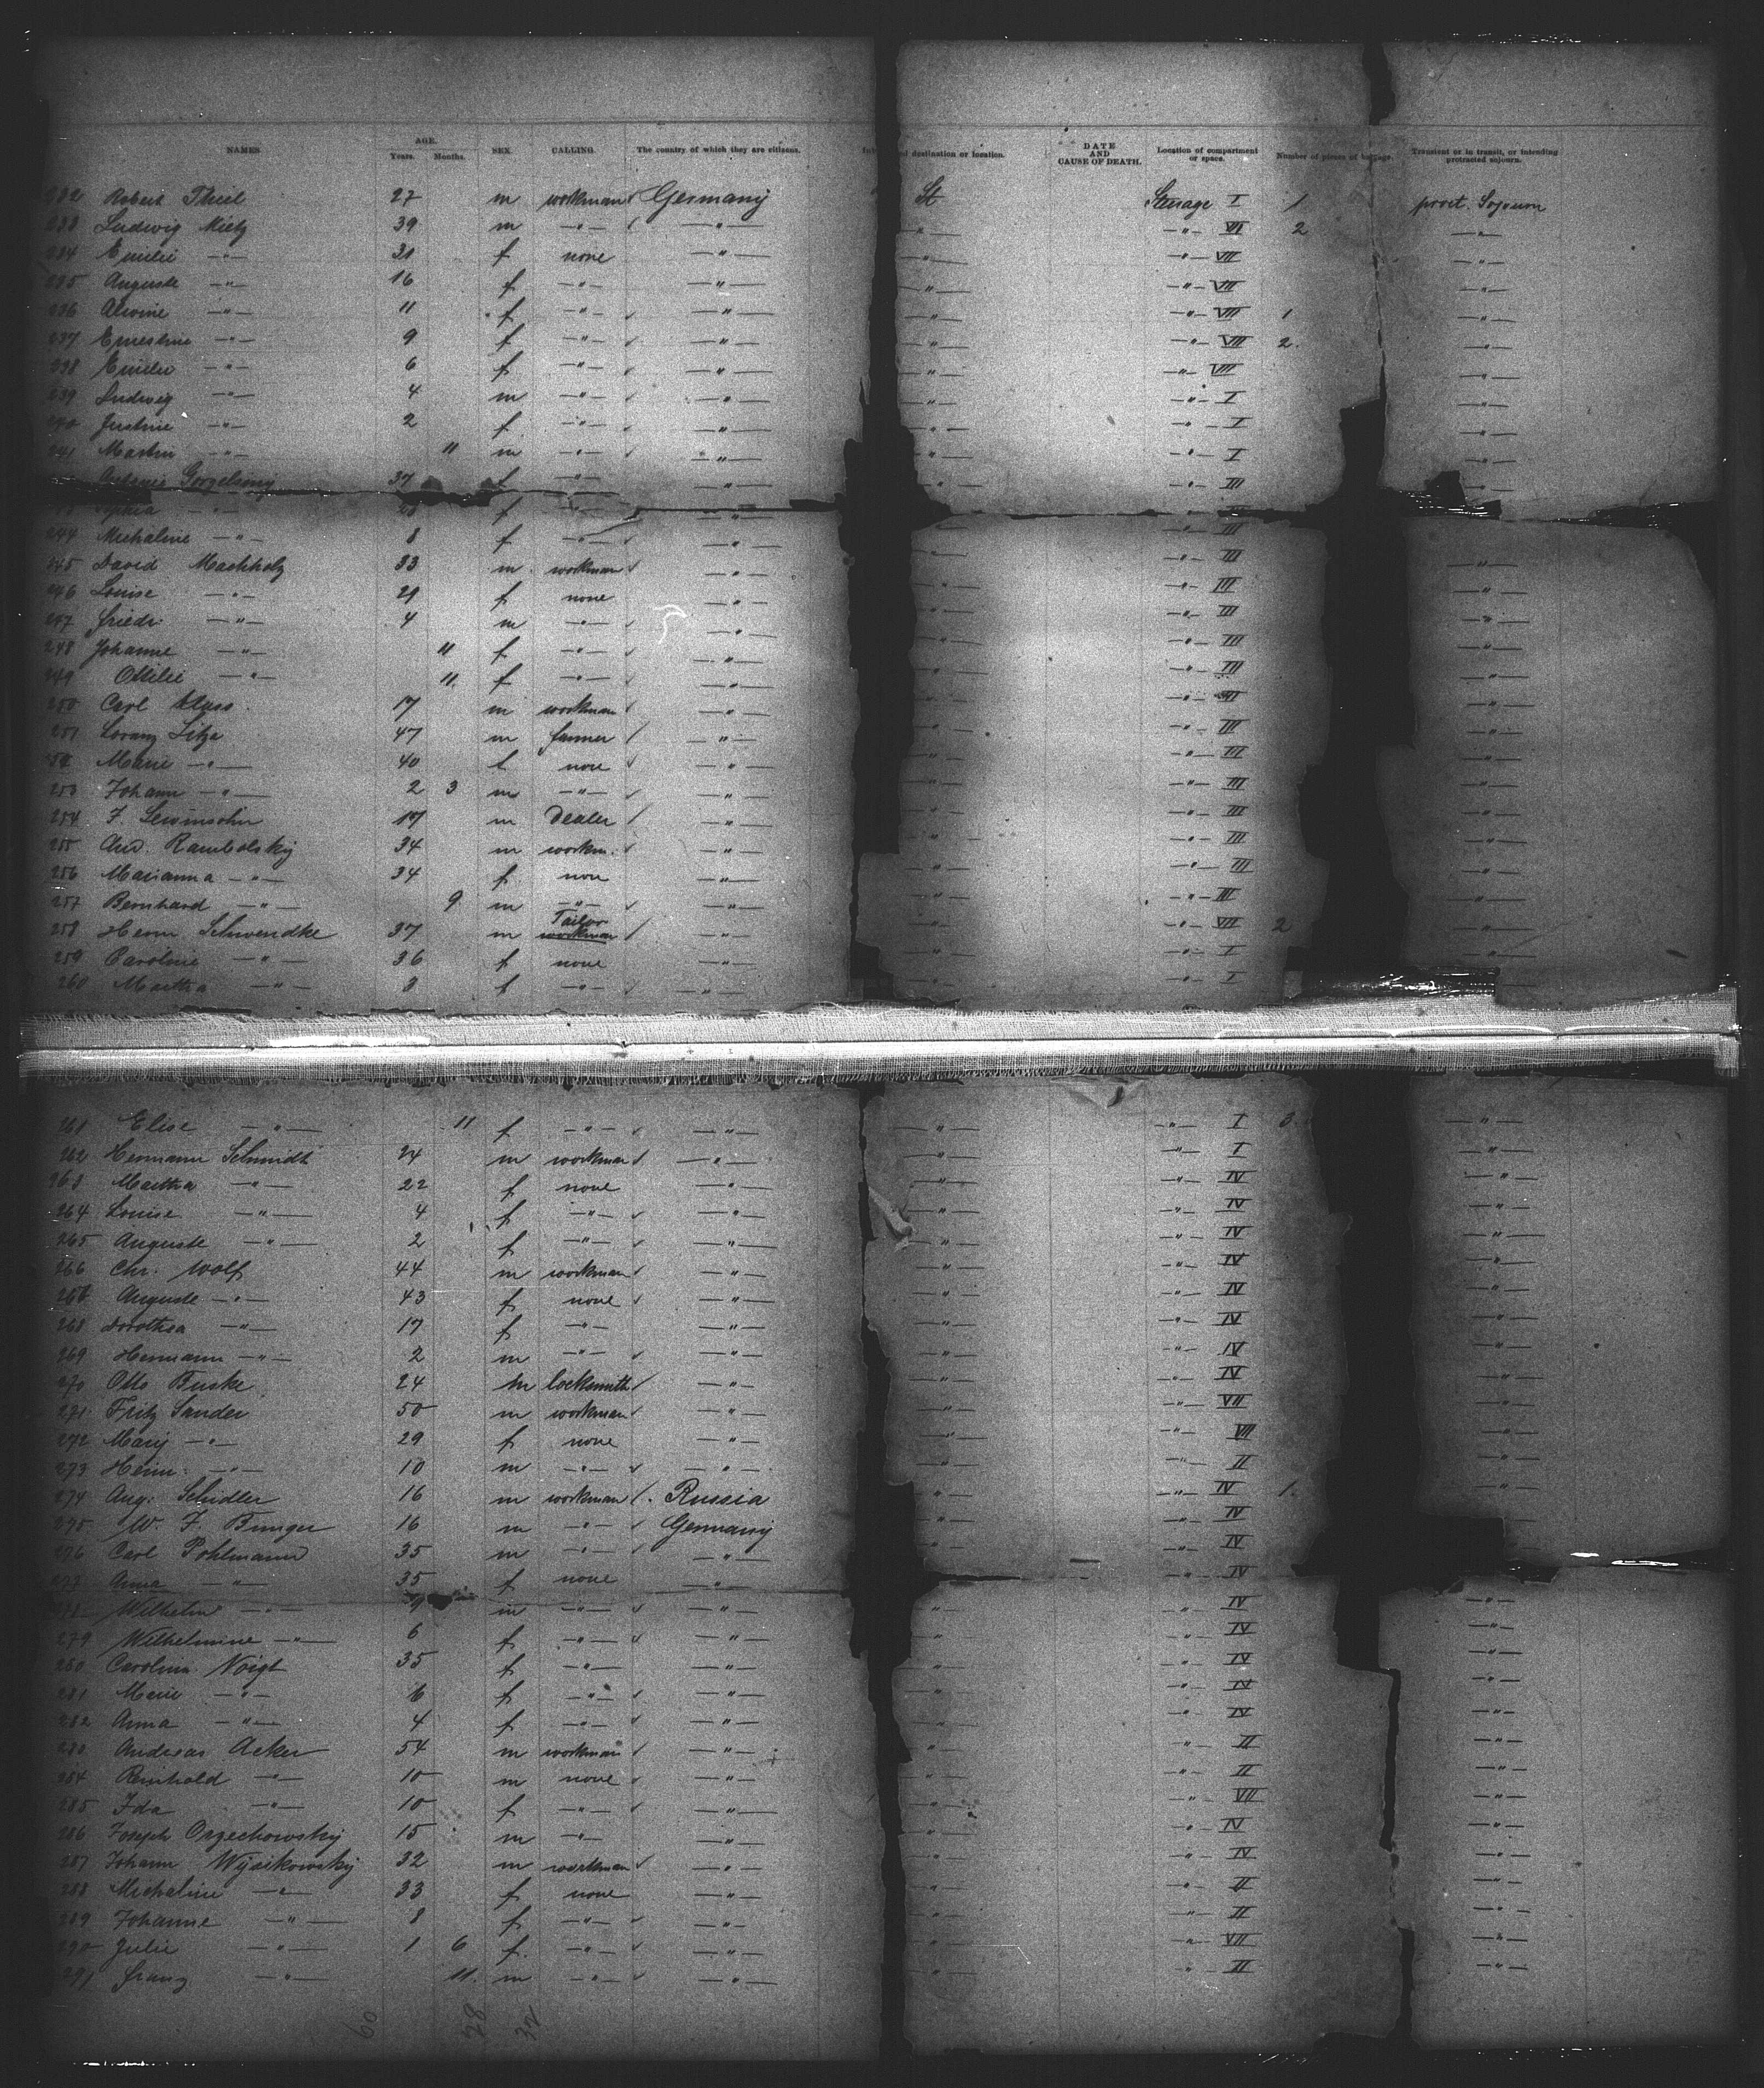 NAMES. AGE. Years. Months. SEX. CALLING. The country of which they are citizens. destination or location. DATE AND CAUSE OF DEATH. Location of compartment or space. Number of pieces of baggage. Transient or in transit, or intending protracted sojourn.
232 Robert Thiel 27 m workman Germany St Steerage I 1 prot. Sojourn
233 Ludwig Mietz 39 m —"— —"— —"— —"— VI 2 —"—
234 Emilie —"— 31 f none —"— —"— —"— VII —"—
235 Auguste —"— 16 f —"— —"— —"— —"— VII —"—
236 Alwine —"— 11 f —"— —"— —"— —"— VII 1 —"—
237 Ernestine —"— 9 f —"— —"— —"— —"— VII 2. —"—
238 Emilie —"— 6 f —"— —"— —"— —"— VII —"—
239 Ludwig —"— 4 m —"— —"— —"— —"— I —"—
240 Justine —"— 2 f —"— —"— —"— —"— I —"—
241 Martin —"— 11 m —"— —"— —"— —"— I —"—
37 f —"— —"— —"— —"— III
Sophia —"— f —"— —"— III
244 Michaline —"— 8 f —"— —"— —"— —"— III —"—
245 David Machholz 33 m workman —"— —"— —"— III —"—
246 Louise —"— 29 f none —"— —"— —"— III —"—
247 Friedr. —"— 4 m —"— —"— —"— —"— III —"—
248 Johanne —"— 11 f —"— —"— —"— —"— III —"—
249 Ottilie —"— 11. f —"— —"— —"— —"— III —"—
250 Carl Klass 17 m workman —"— —"— —"— III —"—
251 Lorenz Litza 47 m farmer —"— —"— —"— III —"—
252 Marie —"— 40 f none —"— —"— —"— III —"—
253 Johann —"— 2 3 m —"— —"— —"— —"— III —"—
254 F. Lewinsohn 17 m Dealer —"— —"— —"— III —"—
255 And. Rambolsky 34 m workm. —"— —"— —"— III —"—
256 Marianna —"— 34 f non —"— —"— —"— III —"—
257 Bernhard —"— 9 m —"— —"— —"— —"— III —"—
258 Herm. Schwendke 37 m Tailor workman —"— —"— —"— VII 2 —"—
259 Caroline —"— 36 f none —"— —"— —"— I —"—
260 Martha —"— 3 f —"— —"— —"— —"— I
261 Elise —"— 11 f —"— —"— —"— —"— I 3 —"—
262 Hermann Schmidt 24 m workman —"— —"— —"— I —"—
263 Martha —"— 22 f none —"— —"— —"— IV —"—
264 Louise —"— 4 f —"— —"— —"— —"— IV —"—
265 Auguste —"— 2 f —"— —"— —"— —"— IV —"—
266 Chr. Wolf 44 m workman —"— —"— —"— IV —"—
267 Auguste —"— 43 f none —"— —"— —"— IV —"—
268 Dorothea —"— 17 f —"— —"— —"— —"— IV —"—
269 Hermann —"— 2 m —"— —"— —"— —"— IV —"—
270 Otto Buske 24 m locksmith —"— —"— —"— IV —"—
271 Fritz Sander 50 m workman —"— —"— —"— VII —"—
272 Mary —"— 29 f none —"— —"— —"— VII —"—
273 Heinr. —"— 10 m —"— —"— —"— —"— II —"—
274 Aug. Schidler 16 m workman Russia —"— —"— IV 1. —"—
275 W. F. Bunger 16 m —"— Germany —"— —"— IV —"—
276 Carl Pohlmann 35 m —"— —"— —"— —"— IV —"—
277 Anna —"— 35 f none —"— —"— IV
278 Wilhelm —"— 9 m —"— —"— —"— —"— IV —"—
279 Wilhelmine —"— 6 f —"— —"— —"— —"— IV —"—
280 Carolina Voigt 35 f —"— —"— —"— —"— IV —"—
281 Marie —"— 6 f —"— —"— —"— —"— IV —"—
282 Anna —"— 4 f —"— —"— —"— —"— IV —"—
283 Andreas Acker 54 m workman —"— —"— —"— II —"—
284 Reinhold —"— 10 m none —"— —"— —"— II —"—
285 Ida —"— 10 f —"— —"— —"— —"— VII —"—
286 Joseph Orzechowsky 15 m —"— —"— —"— —"— IV —"—
287 Johann Wysikowsky 32 m workman —"— —"— —"— IV —"—
288 Michaline —"— 33 f none —"— —"— —"— II —"—
289 Johanne —"— 8 f —"— —"— —"— —"— II —"—
290 Julie —"— 1 6 f. —"— —"— —"— —"— VII —"—
291 Franz —"— 11. m —"— —"— —"— —"— II —"—
60 28 32